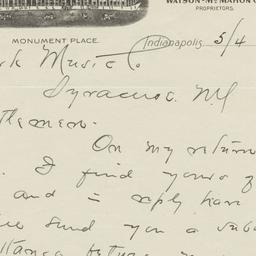 WATSON-McMAHON C
PROPRIETORS.
MONUMENT PLACE.
Indianapolis 5/4
rk Music Co
Syracuse. NY
tlemen.
On my return
. I find yours of
and in reply have
send you a
ttance